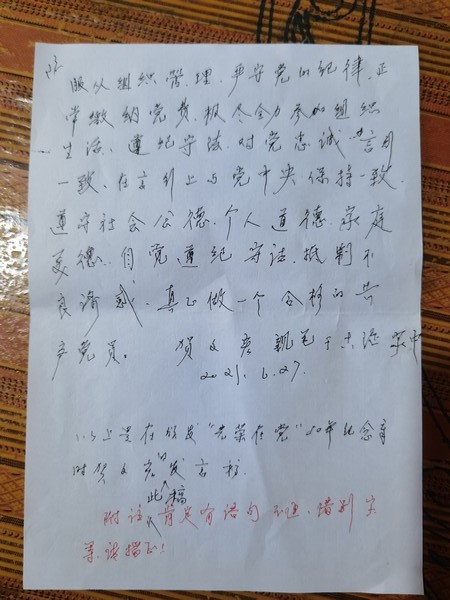 服从组织管理、严守党的纪律、正
常缴纳党费、极尽全力参加组织
生活、遵纪守法、对党忠诚、言行
一致、在言行上与党中央保持一致、
遵守社会公德、个人道德、家庭
美德、自觉遵纪守法、抵制不
良诱惑、真正做一个合格的共
产党员。 贺文 亲笔于 家中
2021.6.27.
以上是在颁发“光荣在党”50年纪念章
时贺文 发言稿.
此稿
附注 有语句不通、错别字
等请指正!